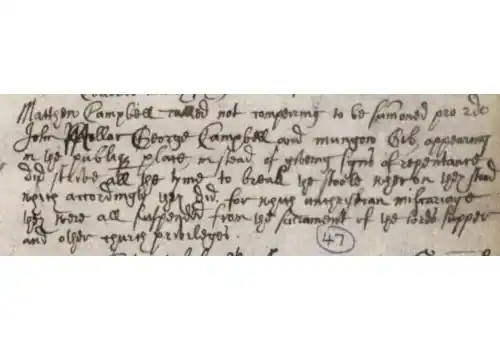 Matthew Campbell called not compeiring to be sumoned pro 2do
John Mellar George Campbell and mungow Gib, appearing
in the publiq place instead of giveing signs of repentance
did strive all the tyme to break the stoole wheron they stood
which accordingly they did. for which unchristian miscariage
they were all suspended from the sacrament of the lords supper
and other church priviledges.
47